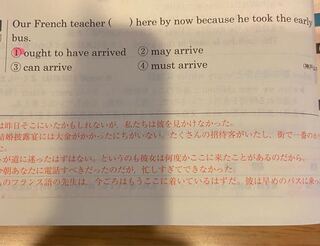 Our French teacher (　　) here by now because he took the early
bus.
① ought to have arrived　② may arrive
③ can arrive　④ must arrive
は昨日そこにいたかもしれないが，私たちは彼を見かけなかった。
結婚披露宴には大金がかかったにちがいない。たくさんの招待客がいたし，街で一番の
た。
が道に迷ったはずはない。というのも彼女は何度かここに来たことがあるのだから。
今朝あなたに電話すべきだったのだが，忙しすぎてできなかった。
のフランス語の先生は，今ごろはもうここに着いているはずだ。彼は早めのバスに乗っ